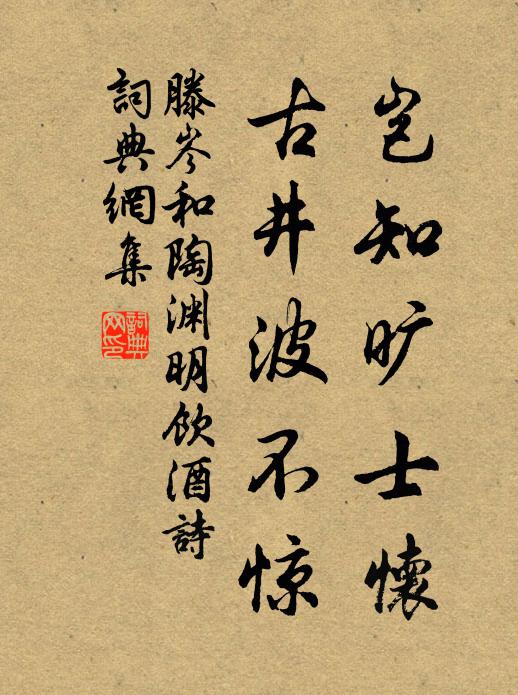 岂知旷士懷
古井波不惊
滕岑和陶渊明饮酒詩
詞典網集
詞典
网印